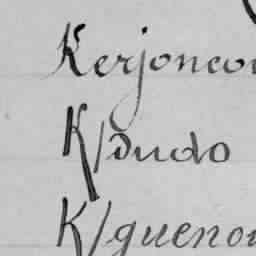 Kerjoncou
K/dudo
K/guenou